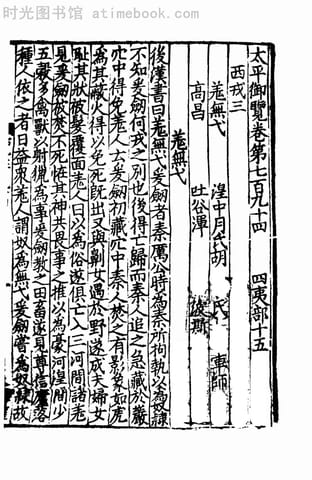 时光图书馆 - atimebook.com
太平御覽卷第七百九十四 四夷部十五
西戎三
羌無弋 湟中月氏胡 氐 車師
高昌 吐谷渾 波斯
羌無弋
後漢書曰羌無弋爰劒者秦厲公時為秦所拘執以為奴隷
不知爰劒何戎之別也後得亡歸而秦人追之急藏於巖
穴中得免羌人云爰劒初藏穴中秦人焚之有影象如虎
為其蔽火得以免死既出又與劓女遇於野遂成夫婦女
恥其狀被髮覆面羌人因以為俗遂俱亡入三河間諸羌
見爰劒被焚不死怪其神共畏事之推以為豪河湟間少
五穀多禽獸以射獵為事爰劒教之田畜遂見尊信廬落
種人依之者日益衆羌人謂奴為無弋爰劒嘗為奴隷故